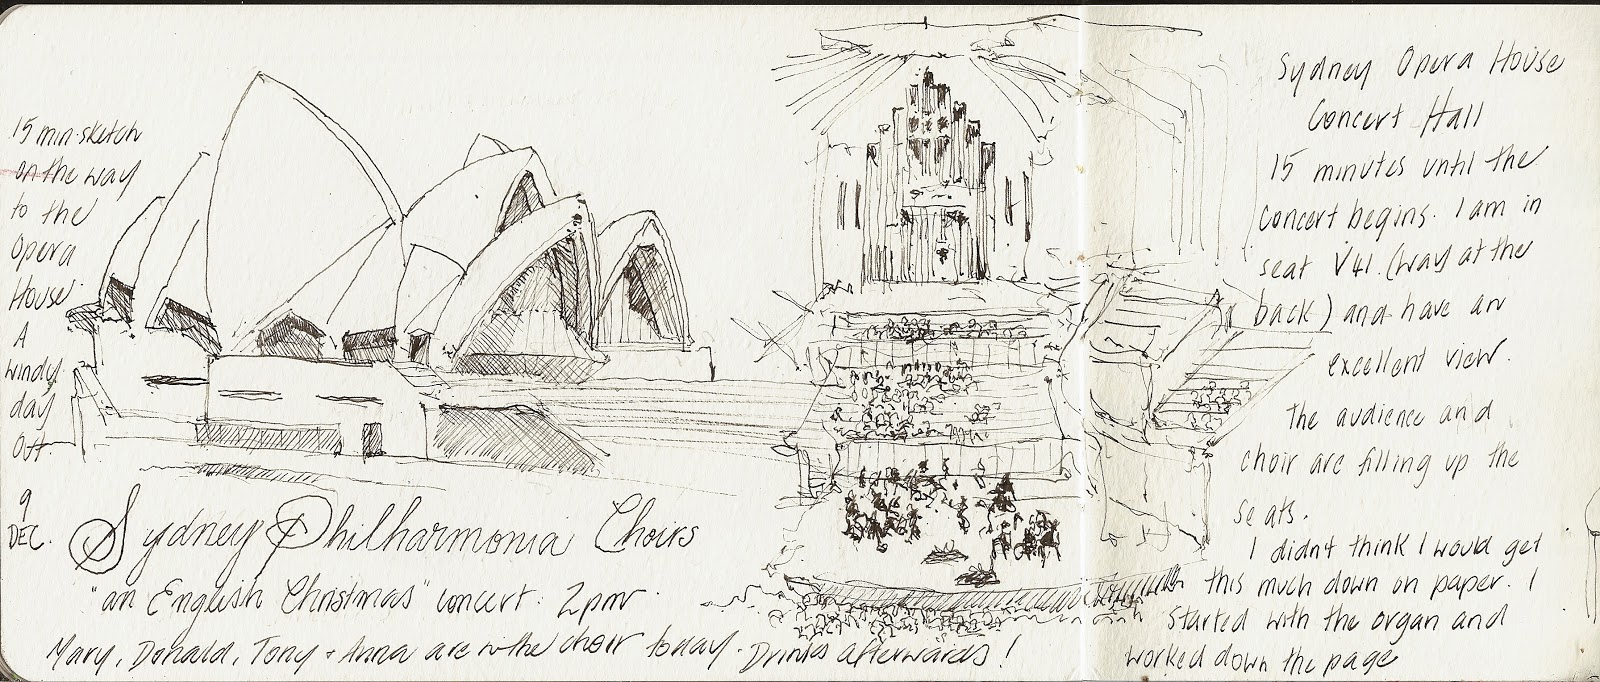 15 min sketch
on the way
to the
Opera
House.
A
windy
day
out.
9
DEC.
Sydney Philharmonia Choirs
"an English Christmas" concert. 2pm.
Mary, Donald, Tony + Anna are in the choir today. Drinks afterwards!
Sydney Opera House
Concert Hall
15 minutes until the
concert begins. I am in
seat V41. (way at the
back) and have an
excellent view.
The audience and
choir are filling up the
seats.
I didn't think I would get
this much down on paper. I
started with the organ and
worked down the page